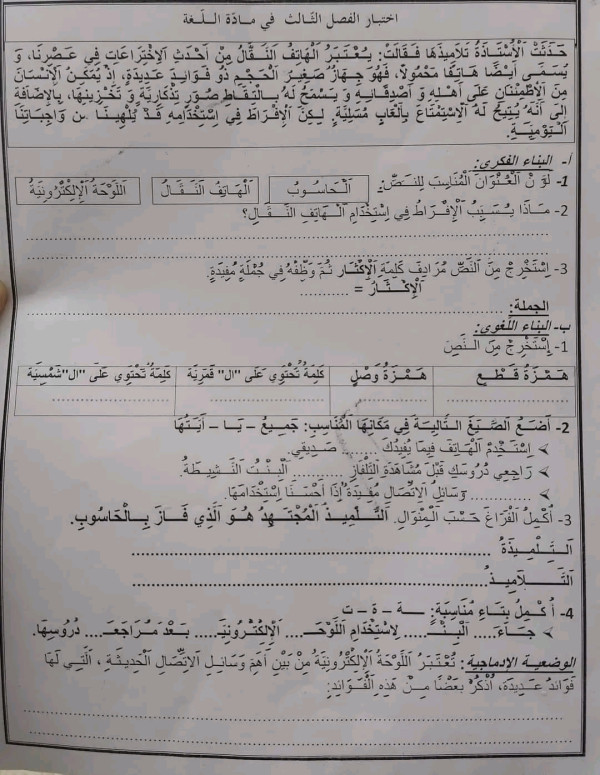 اختبار الفصل الثالث في مادّة اللّغة
حَدَّثَتْ الْأُسْتَاذَةُ تَلَامِيذَهَا فَقَالَتْ: يُعْتَبَرُ الْهَاتِفُ النَّقَّالُ مِنْ أَحْدَثِ الِاخْتِرَاعَاتِ فِي عَصْرِنَا، وَ
يُسَمَّى أَيْضًا هَاتِفًا مَحْمُولًا، فَهُوَ جِهَازٌ صَغِيرُ الْحَجْمِ ذُو فَوَائِدَ عَدِيدَةٍ، إِذْ يُمَكِّنُ الْإِنْسَانَ
مِنَ الِاطْمِئْنَانِ عَلَى أَهْلِهِ وَ أَصْدِقَائِهِ وَ يَسْمَحُ لَهُ بِالْتِقَاطِ صُوَرٍ تِذْكَارِيَّةٍ وَ تَخْزِينِهَا، بِالْإِضَافَةِ
إِلَى أَنَّهُ يُتِيحُ لَهُ الِاسْتِمْتَاعَ بِأَلْعَابٍ مُسَلِّيَةٍ. لَكِنَّ الْإِفْرَاطَ فِي اسْتِخْدَامِهِ قَدْ يُلْهِينَا عن وَاجِبَاتِنَا
الْيَوْمِيَّةِ.
أ- البناء الفكري:
1- لَوِّنْ الْعُنْوَانَ الْمُنَاسِبَ لِلنَّصِّ: الْحَاسُوبُ الْهَاتِفُ النَّقَّالُ اللَّوْحَةُ الْإِلِكْتُرُونِيَّةُ
2- مَاذَا يُسَبِّبُ الْإِفْرَاطُ فِي اسْتِخْدَامِ الْهَاتِفِ النَّقَّالِ؟
..............................................................
..............................................................
3- اِسْتَخْرِجْ مِنَ النَّصِّ مُرَادِفَ كَلِمَةِ الْإِكْثَارِ ثُمَّ وَظِّفْهُ فِي جُمْلَةٍ مُفِيدَةٍ.
الْإِكْثَارُ = ...........
الجملة: ..............................................
ب- البناء اللغوي:
1- اِسْتَخْرِجْ مِنَ النَّصِّ
هَمْزَةُ قَطْعٍ هَمْزَةُ وَصْلٍ كَلِمَةٌ تَحْتَوِي عَلَى "ال" قَمَرِيَّةِ كَلِمَةٌ تَحْتَوِي عَلَى "ال" شَمْسِيَّةِ
.................. .................. .................. ..................
2- أَضَعُ الصِّيَغَ التَّالِيَةَ فِي مَكَانِهَا الْمُنَاسِبِ: جَمِيعُ – يَا – أَيَّتُهَا
➢ اِسْتَخْدِمْ الْهَاتِفَ فِيمَا يُفِيدُكَ ........ صَدِيقِي.
➢ رَاجِعِي دُرُوسَكِ قَبْلَ مُشَاهَدَةِ التِّلْفَازِ .......... الْبِنْتُ النَّشِيطَةُ.
➢ ............ وَسَائِلِ الِاتِّصَالِ مُفِيدَةٌ إِذَا أَحْسَنَّا اسْتِخْدَامَهَا.
3- أُكْمِلُ الْفَرَاغَ حَسَبَ الْمِنْوَالِ. التِّلْمِيذُ الْمُجْتَهِدُ هُوَ الَّذِي فَازَ بِالْحَاسُوبِ.
التِّلْمِيذَةُ ..............................................
التَّلَامِيذُ ..............................................
4- أُكْمِلُ بِتَاءٍ مُنَاسِبَةٍ: ـة – ة – ت
➢ جَاءَ.... الْبِنْـ..... لِاسْتِخْدَامِ اللَّوْحَـ.... الْإِلِكْتُرُونِيَّـ..... بَعْدَ مُرَاجَعَـ.... دُرُوسِهَا.
الوضعية الإدماجية: تُعْتَبَرُ اللَّوْحَةُ الْإِلِكْتُرُونِيَّةُ مِنْ بَيْنِ أَهَمِّ وَسَائِلِ الِاتِّصَالِ الْحَدِيثَةِ، الَّتِي لَهَا
فَوَائِدُ عَدِيدَةٌ، أُذْكُرْ بَعْضًا مِنْ هَذِهِ الْفَوَائِدِ:
..............................................................
..............................................................